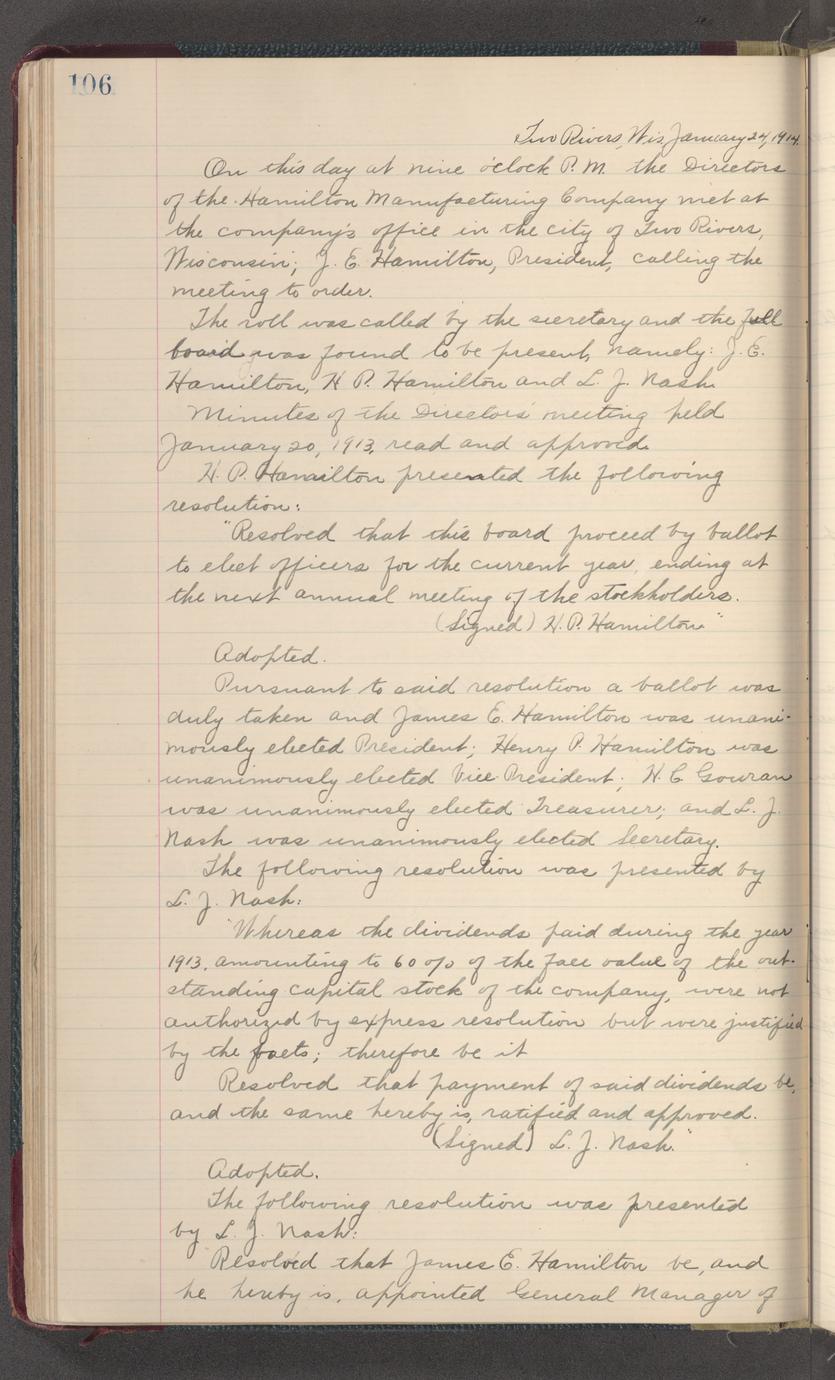 106
Two Rivers, Wis, January 24, 1914.
On this day at nine o'clock P.M. the Directors
of the Hamilton Manufacturing Company met at
the company's office in the city of Two Rivers,
Wisconsin; J. E. Hamilton, President, calling the
meeting to order.
The roll was called by the secretary and the full
board was found to be present, namely: J. E.
Hamilton, H. P. Hamilton and L. J. Nash.
Minutes of the Directors' meeting held
January 20, 1913, read and approved.
H. P. Hamilton presented the following
resolution:
"Resolved that this board proceed by ballot
to elect officers for the current year, ending at
the next annual meeting of the stockholders.
(Signed) H. P. Hamilton"
Adopted.
Pursuant to said resolution a ballot was
duly taken and James E. Hamilton was unani-
mously elected President; Henry P. Hamilton was
unanimously elected Vice President; H. C. Gowran
was unanimously elected Treasurer; and L. J.
Nash was unanimously elected Secretary.
The following resolution was presented by
L. J. Nash:
"Whereas the dividends paid during the year
1913, amounting to 60 % of the face value of the out-
standing capital stock of the company, were not
authorized by express resolution but were justified
by the facts; therefore be it
Resolved that payment of said dividends be,
and the same hereby is, ratified and approved.
(Signed) L. J. Nash."
Adopted.
The following resolution was presented
by L. J. Nash:
Resolved that James E. Hamilton be, and
he hereby is, appointed General Manager of